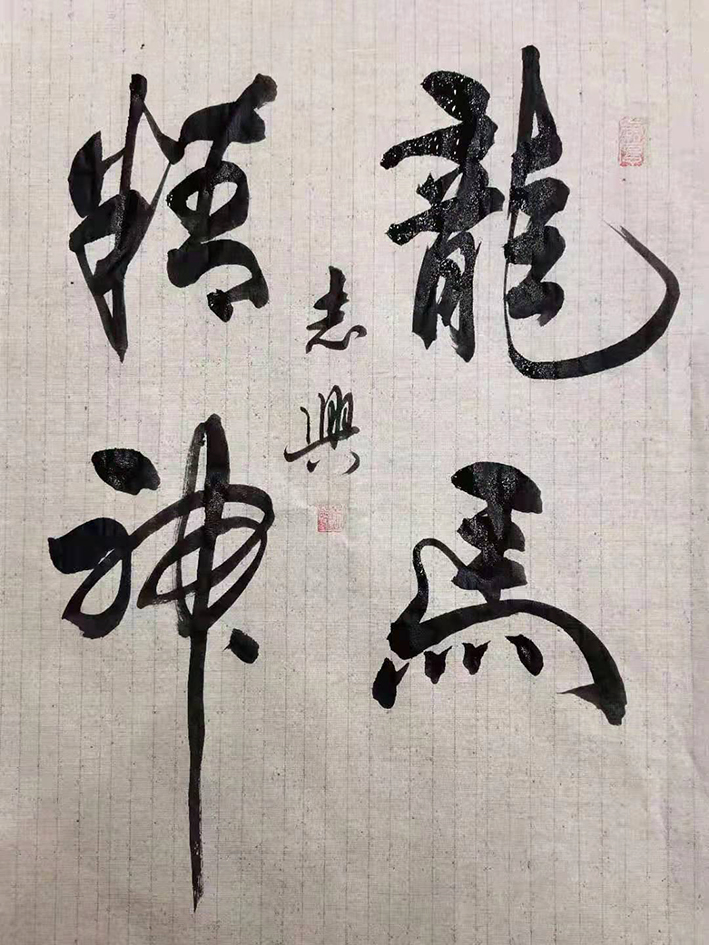 龍馬
精神
志興